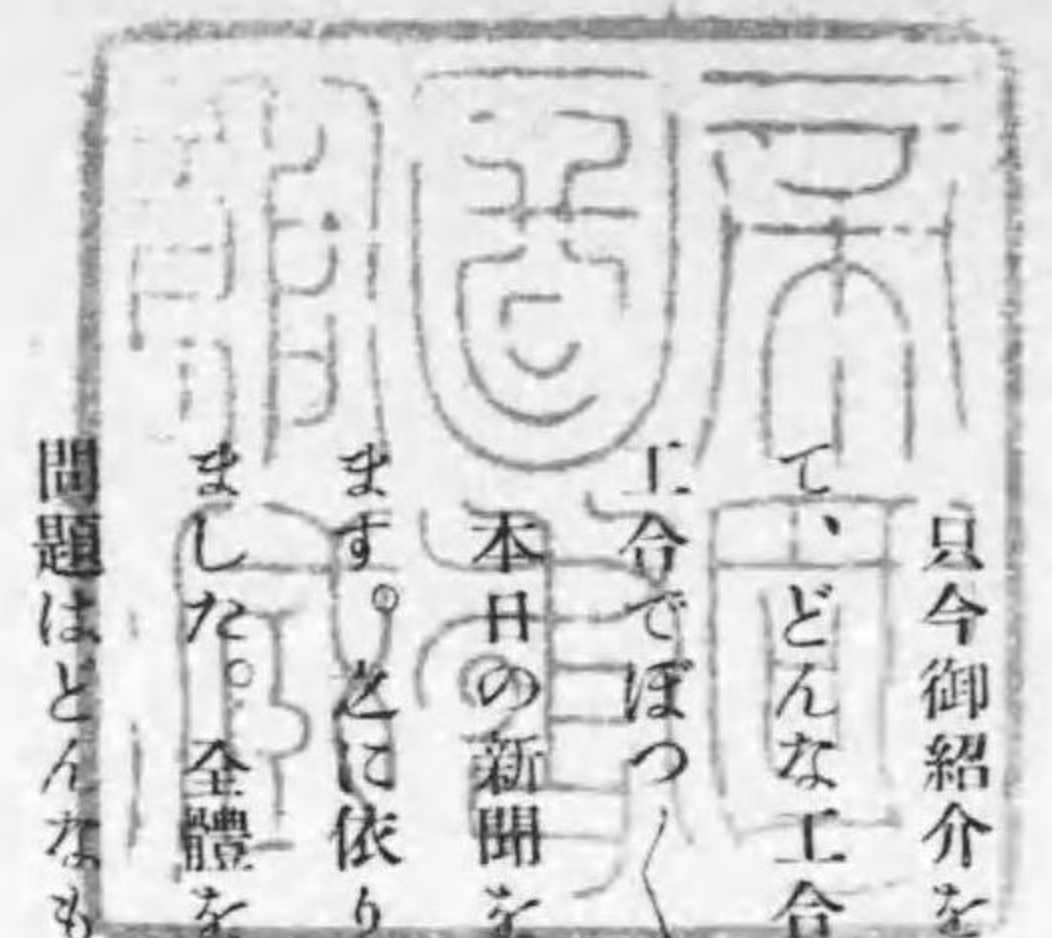 只今御紹介を
て、どんな工合
工合でぼつ〱
本日の新聞を
ます。に依り
ました。全體を
問題はどんなも